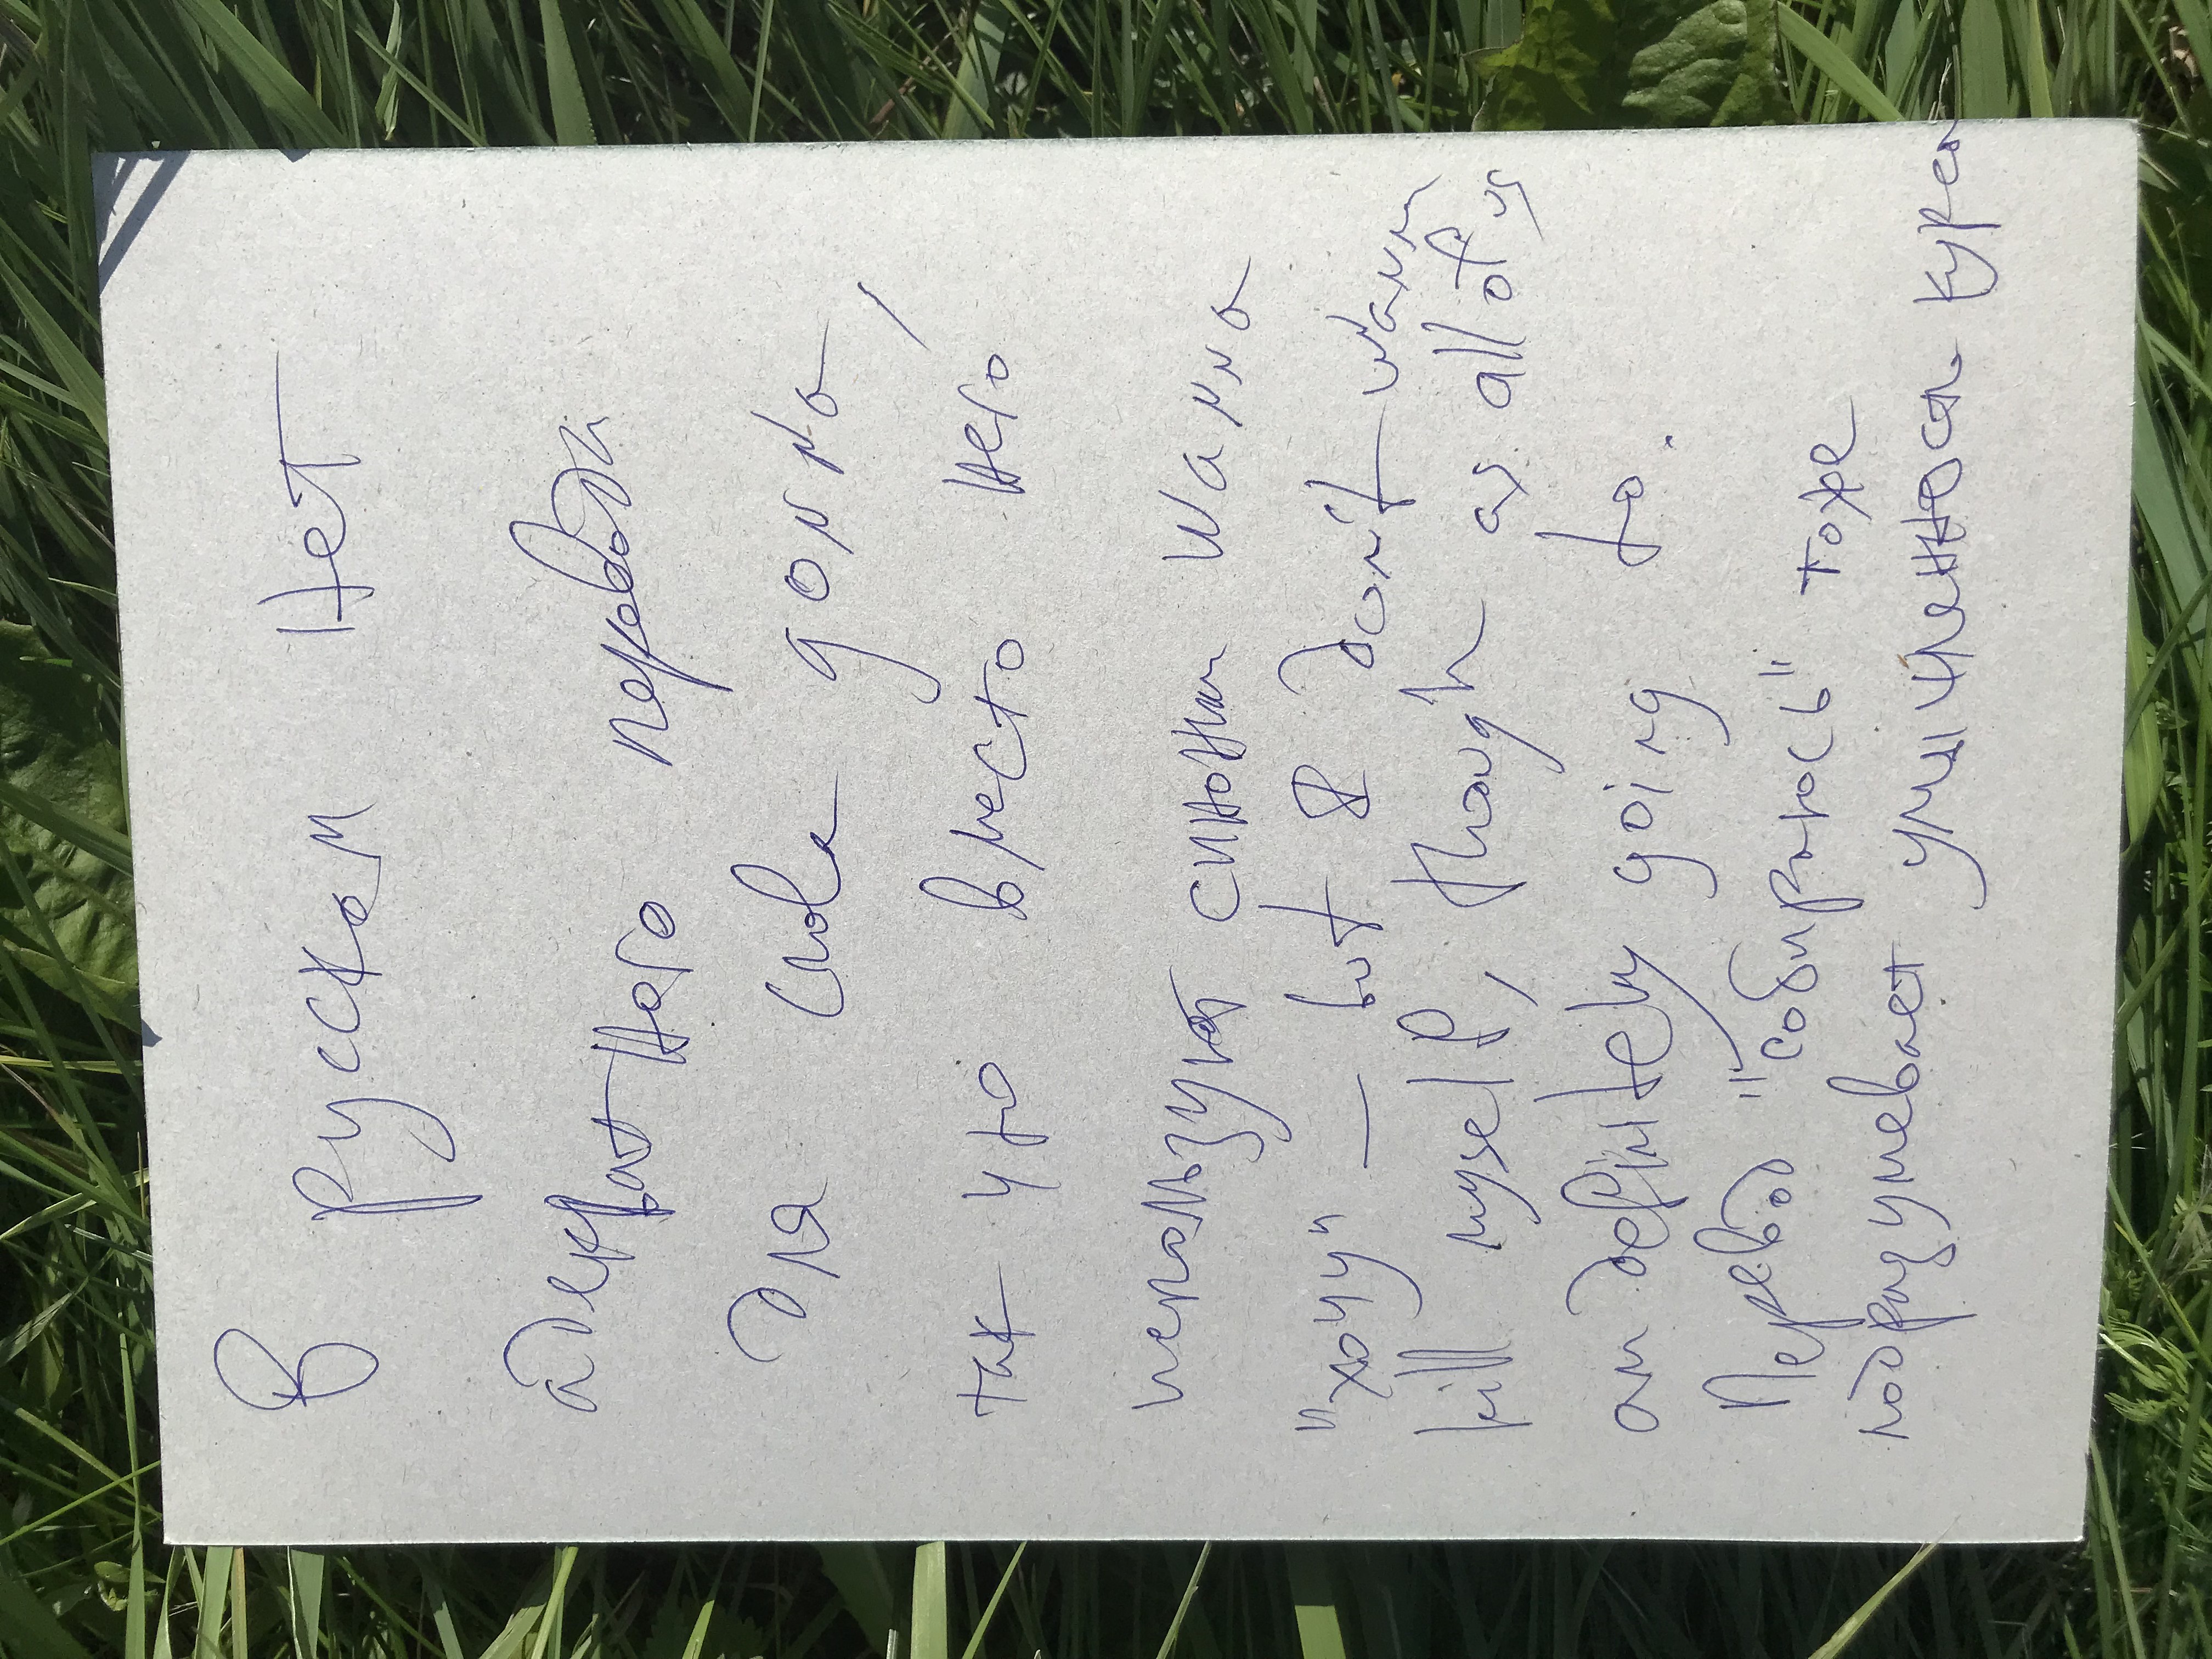 В русском нет
адекватного перевода
для слова gonna,
так что вместо него
используют синоним wanna
"хочу" — but I don't wanna
kill myself, though as all of us
am definitely going to.
Перевод "собираюсь" тоже
подразумевает умышленность.